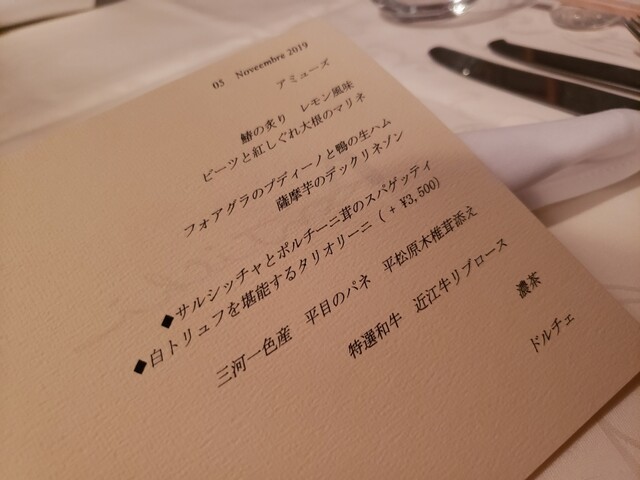 05 Noveembre 2019
アミューズ
鰆の炙り レモン風味
ビーツと紅しぐれ大根のマリネ
フォアグラのブディーノと鴨の生ハム
薩摩芋のデックリネゾン
◆サルシッチャとポルチーニ茸のスパゲッティ
◆白トリュフを堪能するタリオリーニ（+ ¥3,500）
三河一色産 平目のパネ 平松原木椎茸添え
特選和牛 近江牛リブロース
濃茶
ドルチェ